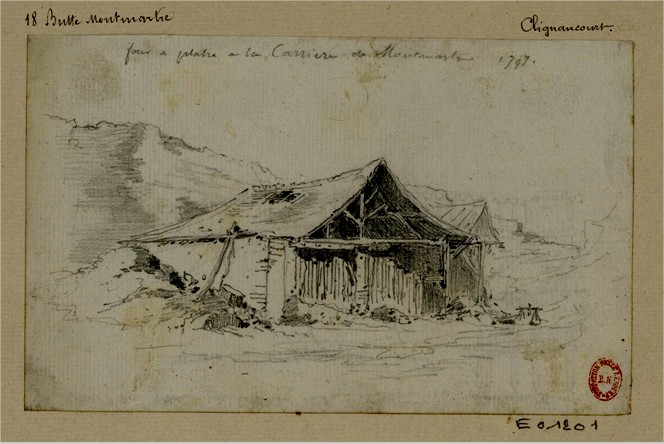 18 Butte Montmartre
Clignancourt.
four a platre a la Carriere de Montmartre 1797.
B.N
E 01201